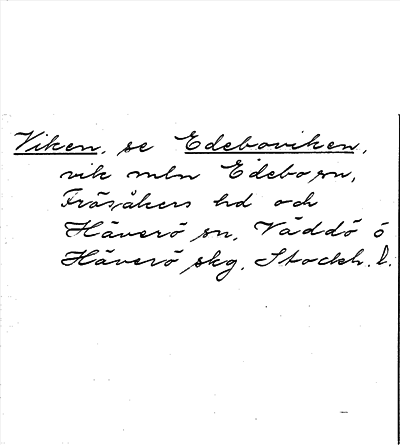 Viken, se Edeboviken,
vik mln Edebo sn,
Frösåkers hd och
Häverö sn, Väddö ö
Häverö skg, Stockh. l.